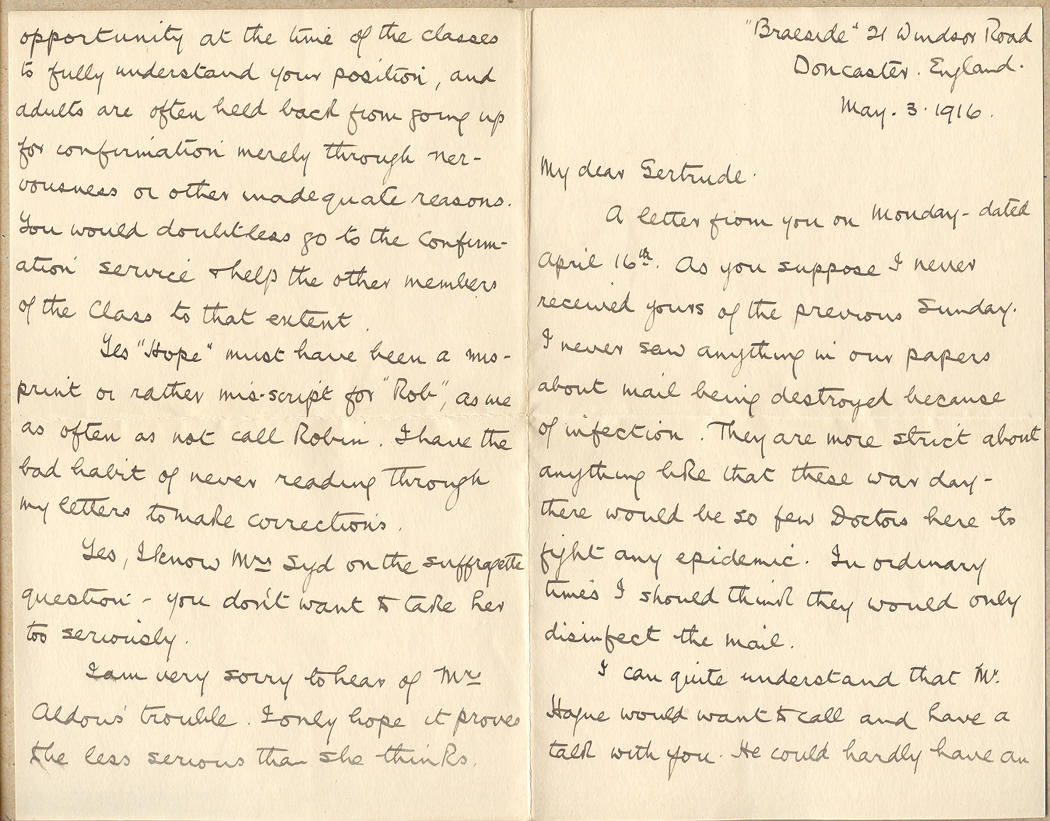 "Braeside" 21 Windsor Road
Doncaster. England.
May. 3. 1916.
My dear Gertrude.
A letter from you on Monday - dated
April 16th. As you suppose I never
received yours of the previous Sunday.
I never saw anything in our papers
about mail being destroyed because
of infection. They are more strict about
anything like that these war day -
there would be so few Doctors here to
fight any epidemic. In ordinary
times I should think they would only
disinfect the mail.
I can quite understand that Mr.
Hague would want to call and have a
talk with you. He could hardly have an
opportunity at the time of the classes
to fully understand your position, and
adults are often held back from going up
for confirmation merely through ner-
vousness or other inadequate reasons.
You would doubtless go to the Confirm-
ation service & help the other members
of the Class to that extent.
Yes "Hope" must have been a mis-
print or rather mis-script for "Rob", as we
as often as not call Robin. I have the
bad habit of never reading through
my letters to make corrections.
Yes, I know Mrs Syd on the suffragette
question - you don't want to take her
too seriously.
I am very sorry to hear of Mrs
Aldous' trouble. I only hope it proves
the less serious than she thinks.